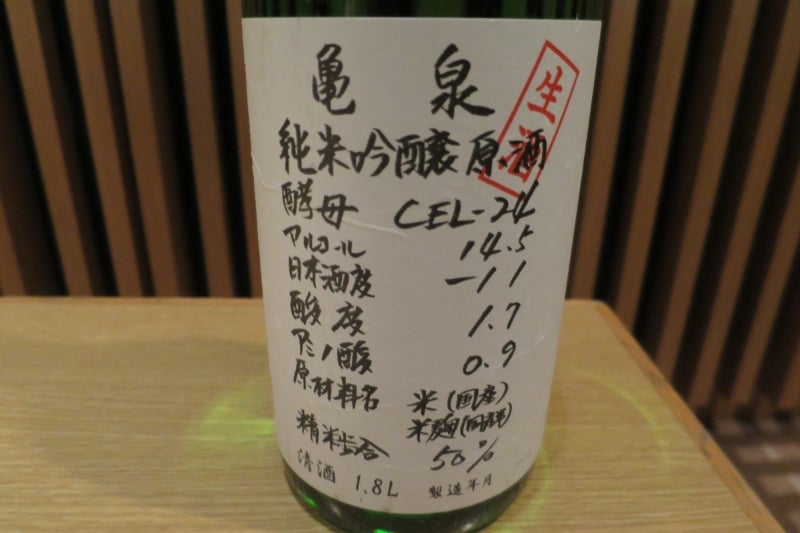 亀泉
生酒
純米吟醸原酒
酵母 CEL-24
アルコール 14.5
日本酒度 -11
酸度 1.7
アミノ酸 0.9
原材料名 米(国産)
米麹(国産米)
精米歩合 50%
清酒 1.8L 製造年月